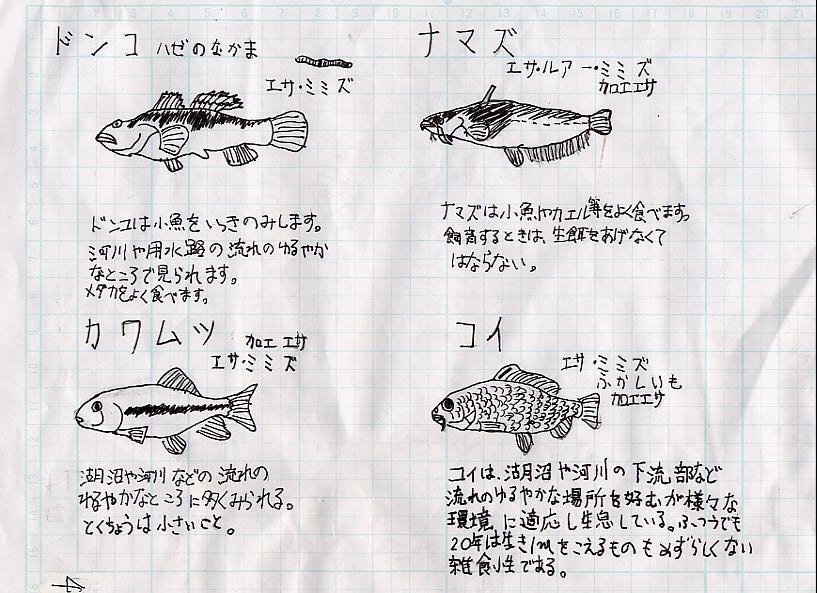 ドンコ ハゼのなかま
エサ・ミミズ
ドンコは小魚をいっきのみします。
河川や用水路の流れのゆるやか
なところで見られます。
メダカをよく食べます。
ナマズ
エサ・ルアー・ミミズ
加工エサ
ナマズは小魚やカエル等をよく食べます。
飼育するときは、生餌をあげなくて
はならない。
カワムツ 加工エサ
エサ・ミミズ
湖沼や河川などの流れの
ゆるやかなところに多くみられる。
とくちょうは小さいこと。
コイ
エサ・ミミズ
ふかしいも
加工エサ
コイは、湖沼や河川の下流部など
流れのゆるやかな場所を好むが様々な
環境に適応し生息している。ふつうでも
20年は生き1mをこえるものもめずらしくない
雑食性である。
4